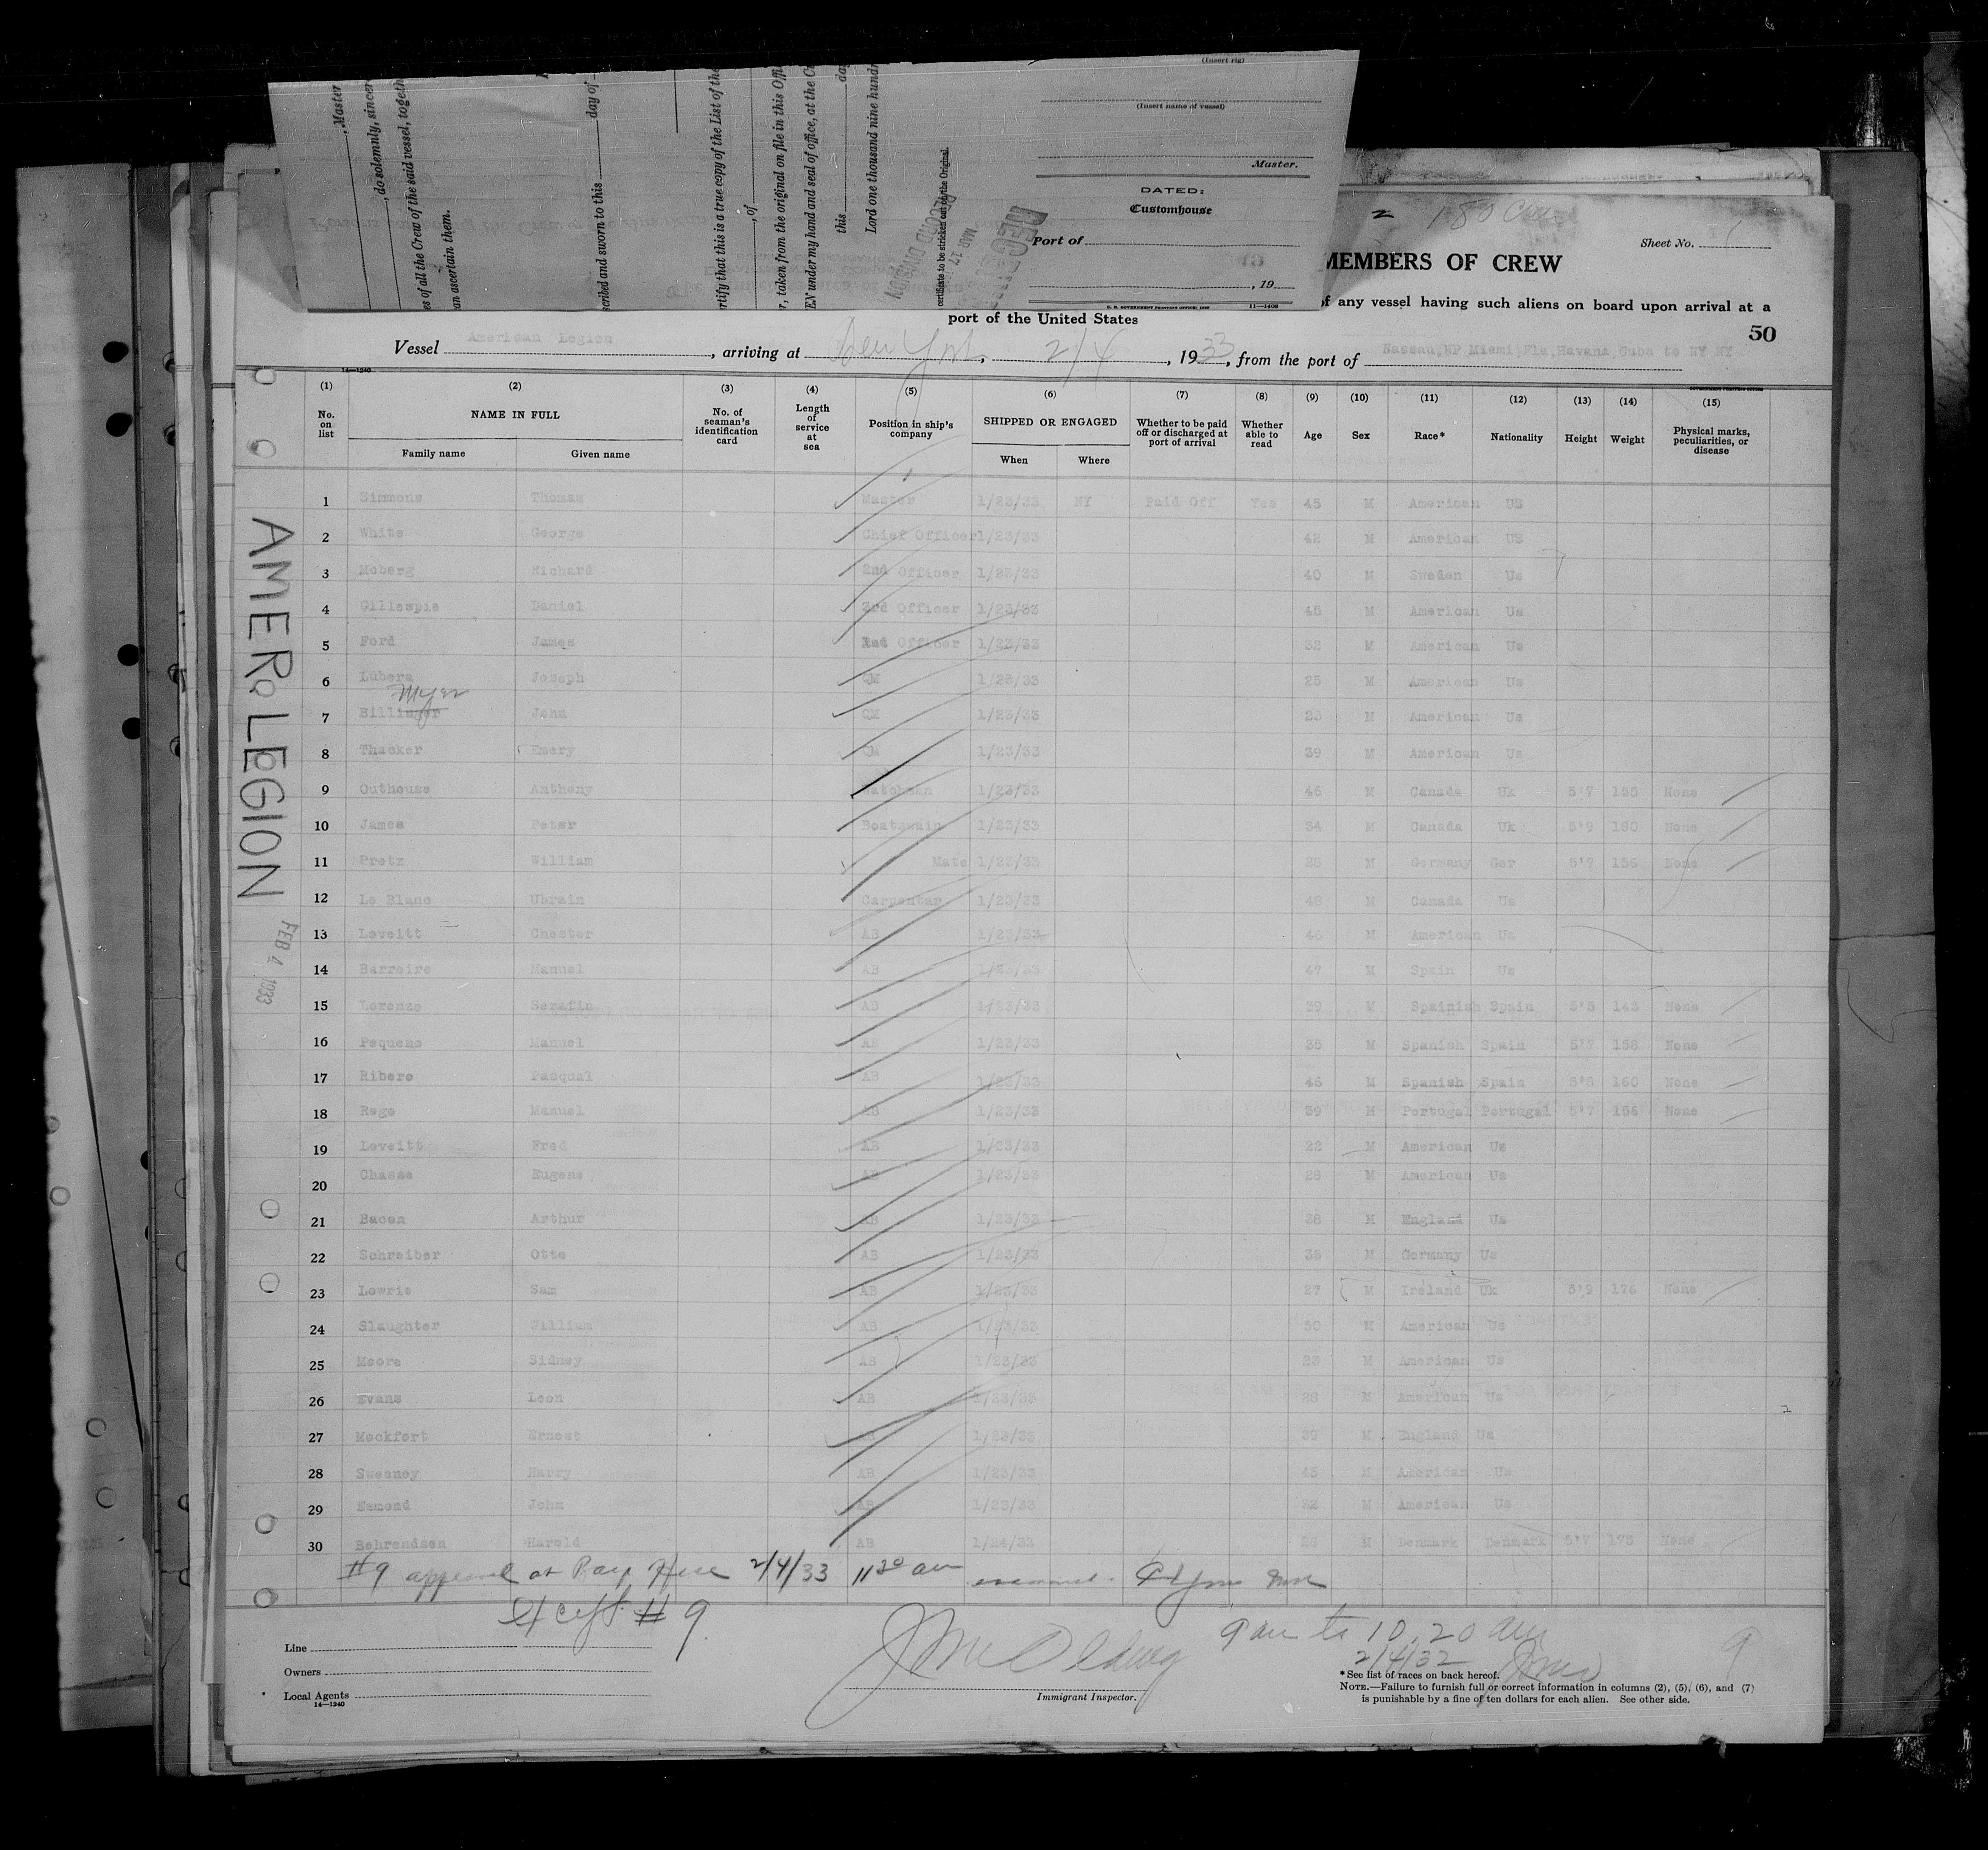 , Master
, do solemnly, sincer
es of all the Crew of the said vessel, togeth
an ascertain them.
scribed and sworn to this day of
rtify that this is a true copy of the List of the
, of
r, taken from the original on file in this Offi
EN under my hand and seal of office, at the C
this da
Lord one thousand nine hundr
ertificate to be stricken out the Original.
RECORD DIVISION
MAR 17
(Insert rig)
(Insert name of vessel)
Master.
DATED:
Customhouse
Port of
, 19
U. S. GOVERNMENT PRINTING OFFICE 11—1408
Sheet No. 1
MEMBERS OF CREW
of any vessel having such aliens on board upon arrival at a
port of the United States
50
Vessel American Legion, arriving at New York, 2/4, 1933, from the port of Nassau,NP Miami Fla,Havana,Cuba to NY NY
14—1240
(1) (2) (3) (4) (5) (6) (7) (8) (9) (10) (11) (12) (13) (14) (15)
No. on list NAME IN FULL No. of seaman's identification card Length of service at sea Position in ship's company SHIPPED OR ENGAGED Whether to be paid off or discharged at port of arrival Whether able to read Age Sex Race* Nationality Height Weight Physical marks, peculiarities, or disease
Family name Given name When Where
AMER. LEGION
FEB 4 1933
1 Simmons Thomas Master 1/23/33 NY Paid Off Yes 45 M American US
2 White George Chief Officer 1/23/33 42 M American US
3 Moberg Richard 2nd Officer 1/23/33 40 M Sweden Us
4 Gillespie Daniel 3rd Officer 1/23/33 45 M American Us
5 Ford James 2nd Officer 1/23/33 32 M American Us
6 Lubera Joseph QM 1/23/33 25 M American Us
Myer
7 Billinger John QM 1/23/33 23 M American Us
8 Thacker Emery QM 1/23/33 39 M American Us
9 Outhouse Anthony Watchman 1/23/33 46 M Canada Uk 5'7 155 None
10 James Peter Boatswain 1/23/33 34 M Canada Uk 5'9 180 None
11 Pretz William Mate 1/23/33 28 M Germany Ger 5'7 156 None
12 Le Blanc Uhrain Carpenter 1/23/33 48 M Canada Us
13 Loveitt Chester AB 1/23/33 46 M American Us
14 Barreiro Manuel AB 1/23/33 47 M Spain Us
15 Lorenzo Serafin AB 1/23/33 39 M Spainish Spain 5'5 143 None
16 Pequeno Manuel AB 1/23/33 35 M Spanish Spain 5'7 158 None
17 Ribero Pasqual AB 1/23/33 46 M Spanish Spain 5'8 160 None
18 Rego Manuel AB 1/23/33 39 M Portugal Portugal 5'7 156 None
19 Loveitt Fred AB 1/23/33 22 M American Us
20 Chasse Eugene AB 1/23/33 28 M American Us
21 Bacon Arthur AB 1/23/33 38 M England Us
22 Schreiber Otto AB 1/23/33 35 M Germany Us
23 Lowrie Sam AB 1/23/33 27 M Ireland Uk 5'9 176 None
24 Slaughter William AB 1/23/33 50 M American Us
25 Moore Sidney AB 1/23/33 23 M American Us
26 Evans Leon AB 1/23/33 28 M American Us
27 Mockfort Ernest AB 1/23/33 39 M England Us
28 Sweeney Harry AB 1/23/33 45 M American Us
29 Esmond John AB 1/23/33 22 M American Us
30 Behrendsen Harold AB 1/24/33 25 M Denmark Denmark 5'7 175 None
#9 at 2/4/33 11 30 am
Except #9
9 am to 10.20 am
2/4/32
9
Line
Owners
Local Agents
14—1240
Immigrant Inspector.
*See list of races on back hereof.
NOTE.—Failure to furnish full or correct information in columns (2), (5), (6), and (7)
is punishable by a fine of ten dollars for each alien. See other side.